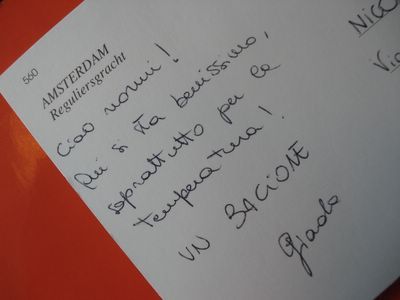 560
AMSTERDAM
Reguliersgracht
Ciao nonni!
Qui si sta benissimo,
soprattutto per la
temperatura!
UN BACIONE
Giada